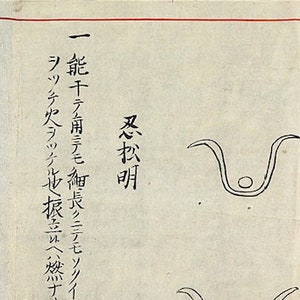 忍松明
一能干テ角ニテモ細長クニテモソクイ
シツケ火ヲツケル也振立レハ燃